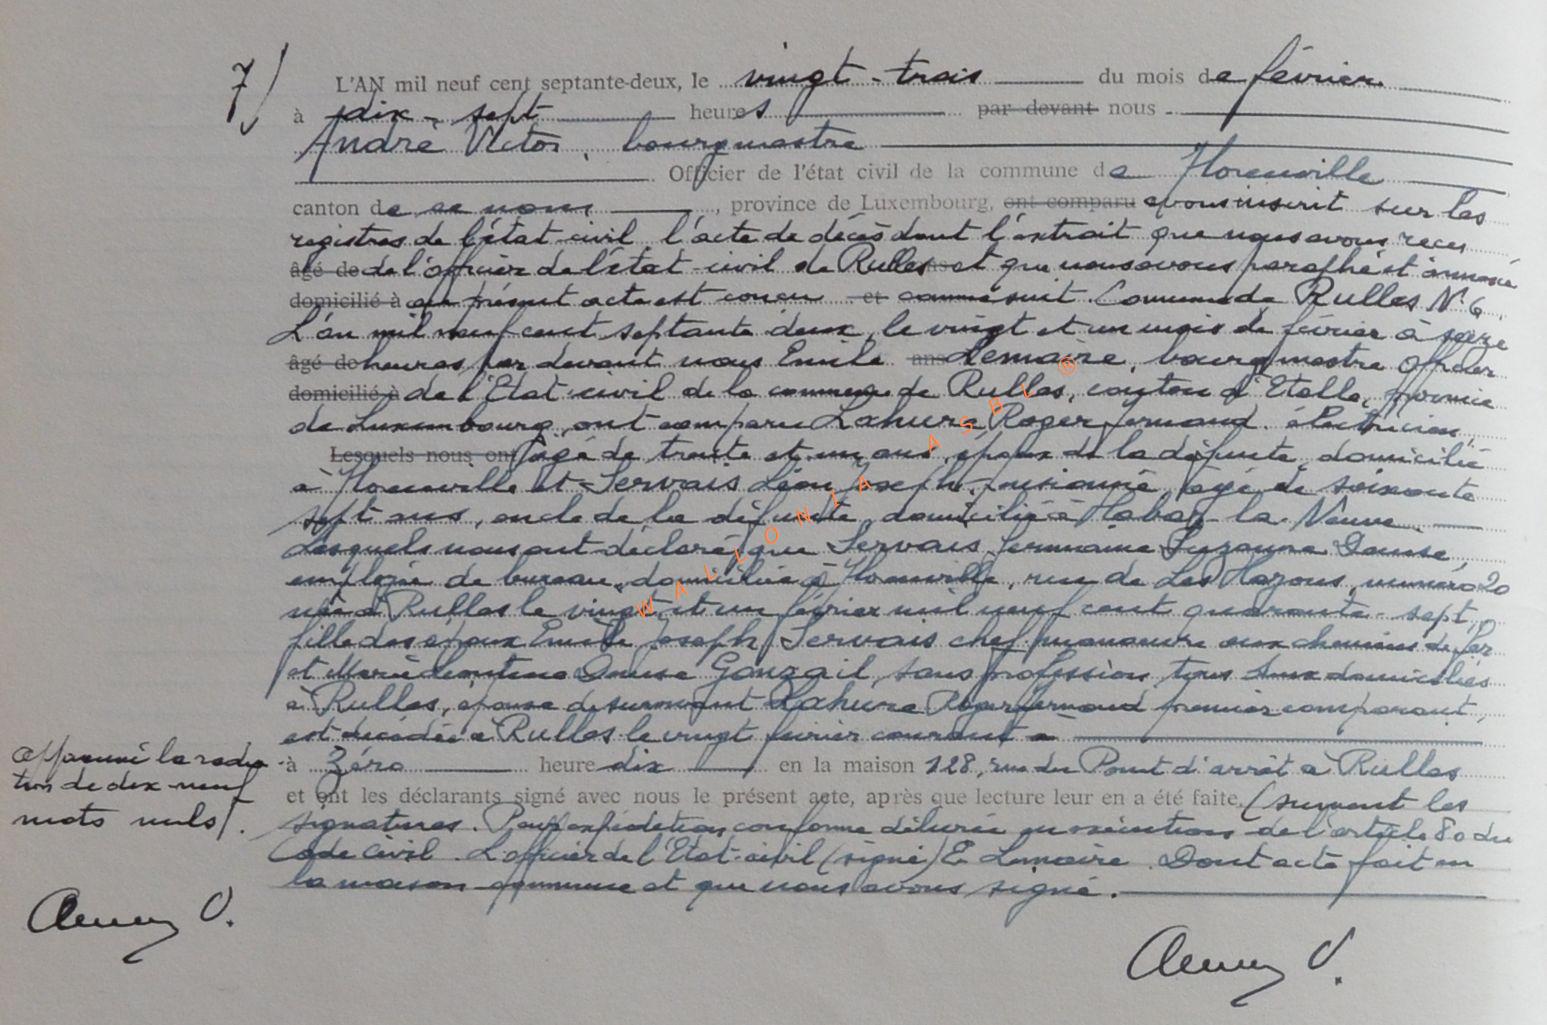 7/ L'AN mil neuf cent septante-deux, le vingt-trois du mois de février
à dix-sept heures par devant nous
André Victor, bourgmestre
Officier de l'état civil de la commune de Florenville
canton de ce nom, province de Luxembourg, ont comparu avons inscrit sur les
registres de l'état civil, l'acte de décès dont l'extrait que nous avons reçu
âgé de de l'officier de l'état-civil de Rulles ans et que nous avons paraphé et annexé
domicilié à au présent acte est conçu et comme suit. Commune de Rulles N° 6
L'an mil neuf cent septante deux, le vingt et un mois de février à seize
âgé de heures, par devant nous Emile ans Lemaire, bourgmestre officier
domicilié à de l'Etat-civil de la commune de Rulles, canton d'Etalle, province
de Luxembourg, ont comparu Lahure Roger Fernand, électricien,
Lesquels nous ont âgé de trente et un ans, époux de la défunte, domicilié
à Florenville et Servais Léon Joseph, pensionné, âgé de soixante
sept ans, oncle de la défunte, domicilié à Habay-la-Neuve.
Lesquels nous ont déclaré que Servais Germaine Suzanne Denise,
employée de bureau, domiciliée à Florenville, rue de Les Hazous, numéro 20
née à Rulles le vingt et un février mil neuf cent quarante-sept,
fille des époux Emile Joseph Servais chef manoeuvre aux chemins de fer
et Marie Denise Gonzail, sans profession, tous deux domiciliés
à Rulles, épouse du survivant Lahure Roger Fernand premier comparant,
est décédée à Rulles le vingt février courant à
à Zéro heure dix en la maison 128, rue du Point d'arrêt à Rulles
et ont les déclarants signé avec nous le présent acte, après que lecture leur en a été faite. (suivent les
signatures. Pour expédition conforme délivrée en exécution de l'article 80 du
Code Civil. L'officier de l'Etat-civil (signé) E. Lemaire. Dont acte fait en
la maison commune et que nous avons signé.
Approuvé la radia-
tion de dix-neuf
mots nuls.
WALLONIA ASBL ®